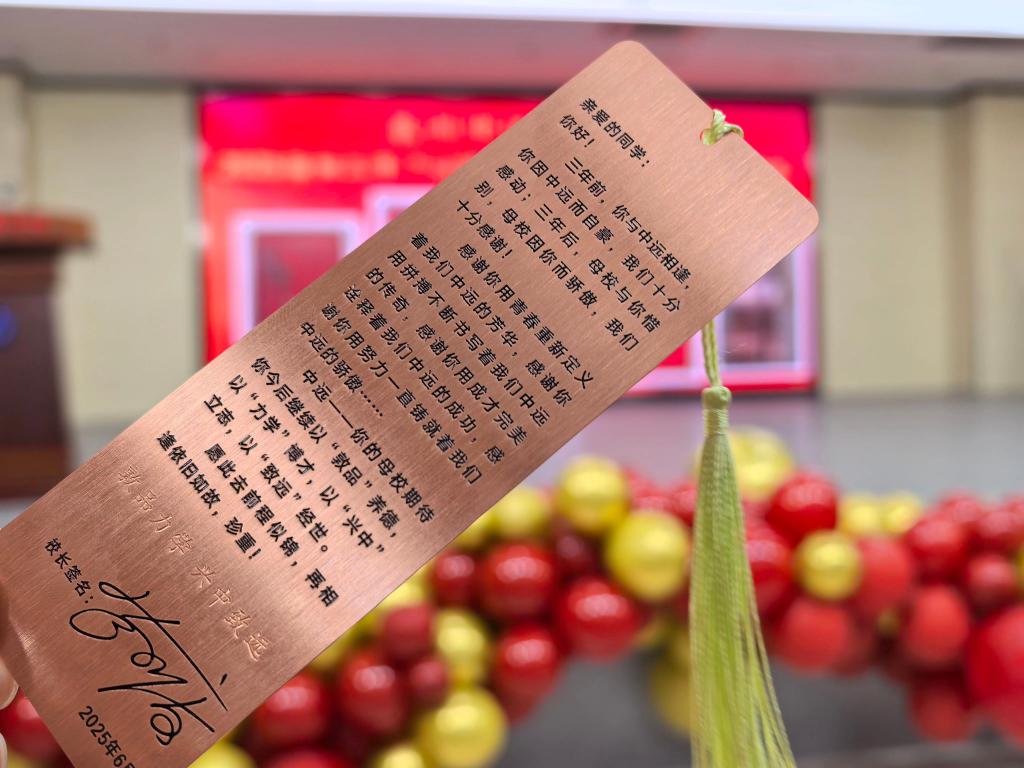 亲爱的同学：
你好！
三年前，你与中远相逢，
你因中远而自豪，我们十分
感动；三年后，母校与你惜
别，母校因你而骄傲，我们
十分感谢！
感谢你用青春重新定义
着我们中远的芳华，感谢你
用拼搏不断书写着我们中远
的传奇，感谢你用成才完美
诠释着我们中远的成功，感
谢你用努力一直铸就着我们
中远的骄傲……
中远——你的母校期待
你今后继续以“敦品”养德，
以“力学”博才，以“兴中”
立志，以“致远”经世。
愿此去前程似锦，再相
逢依旧如故，珍重！
敦品力学 兴中致远
校长签名：
2025年6月